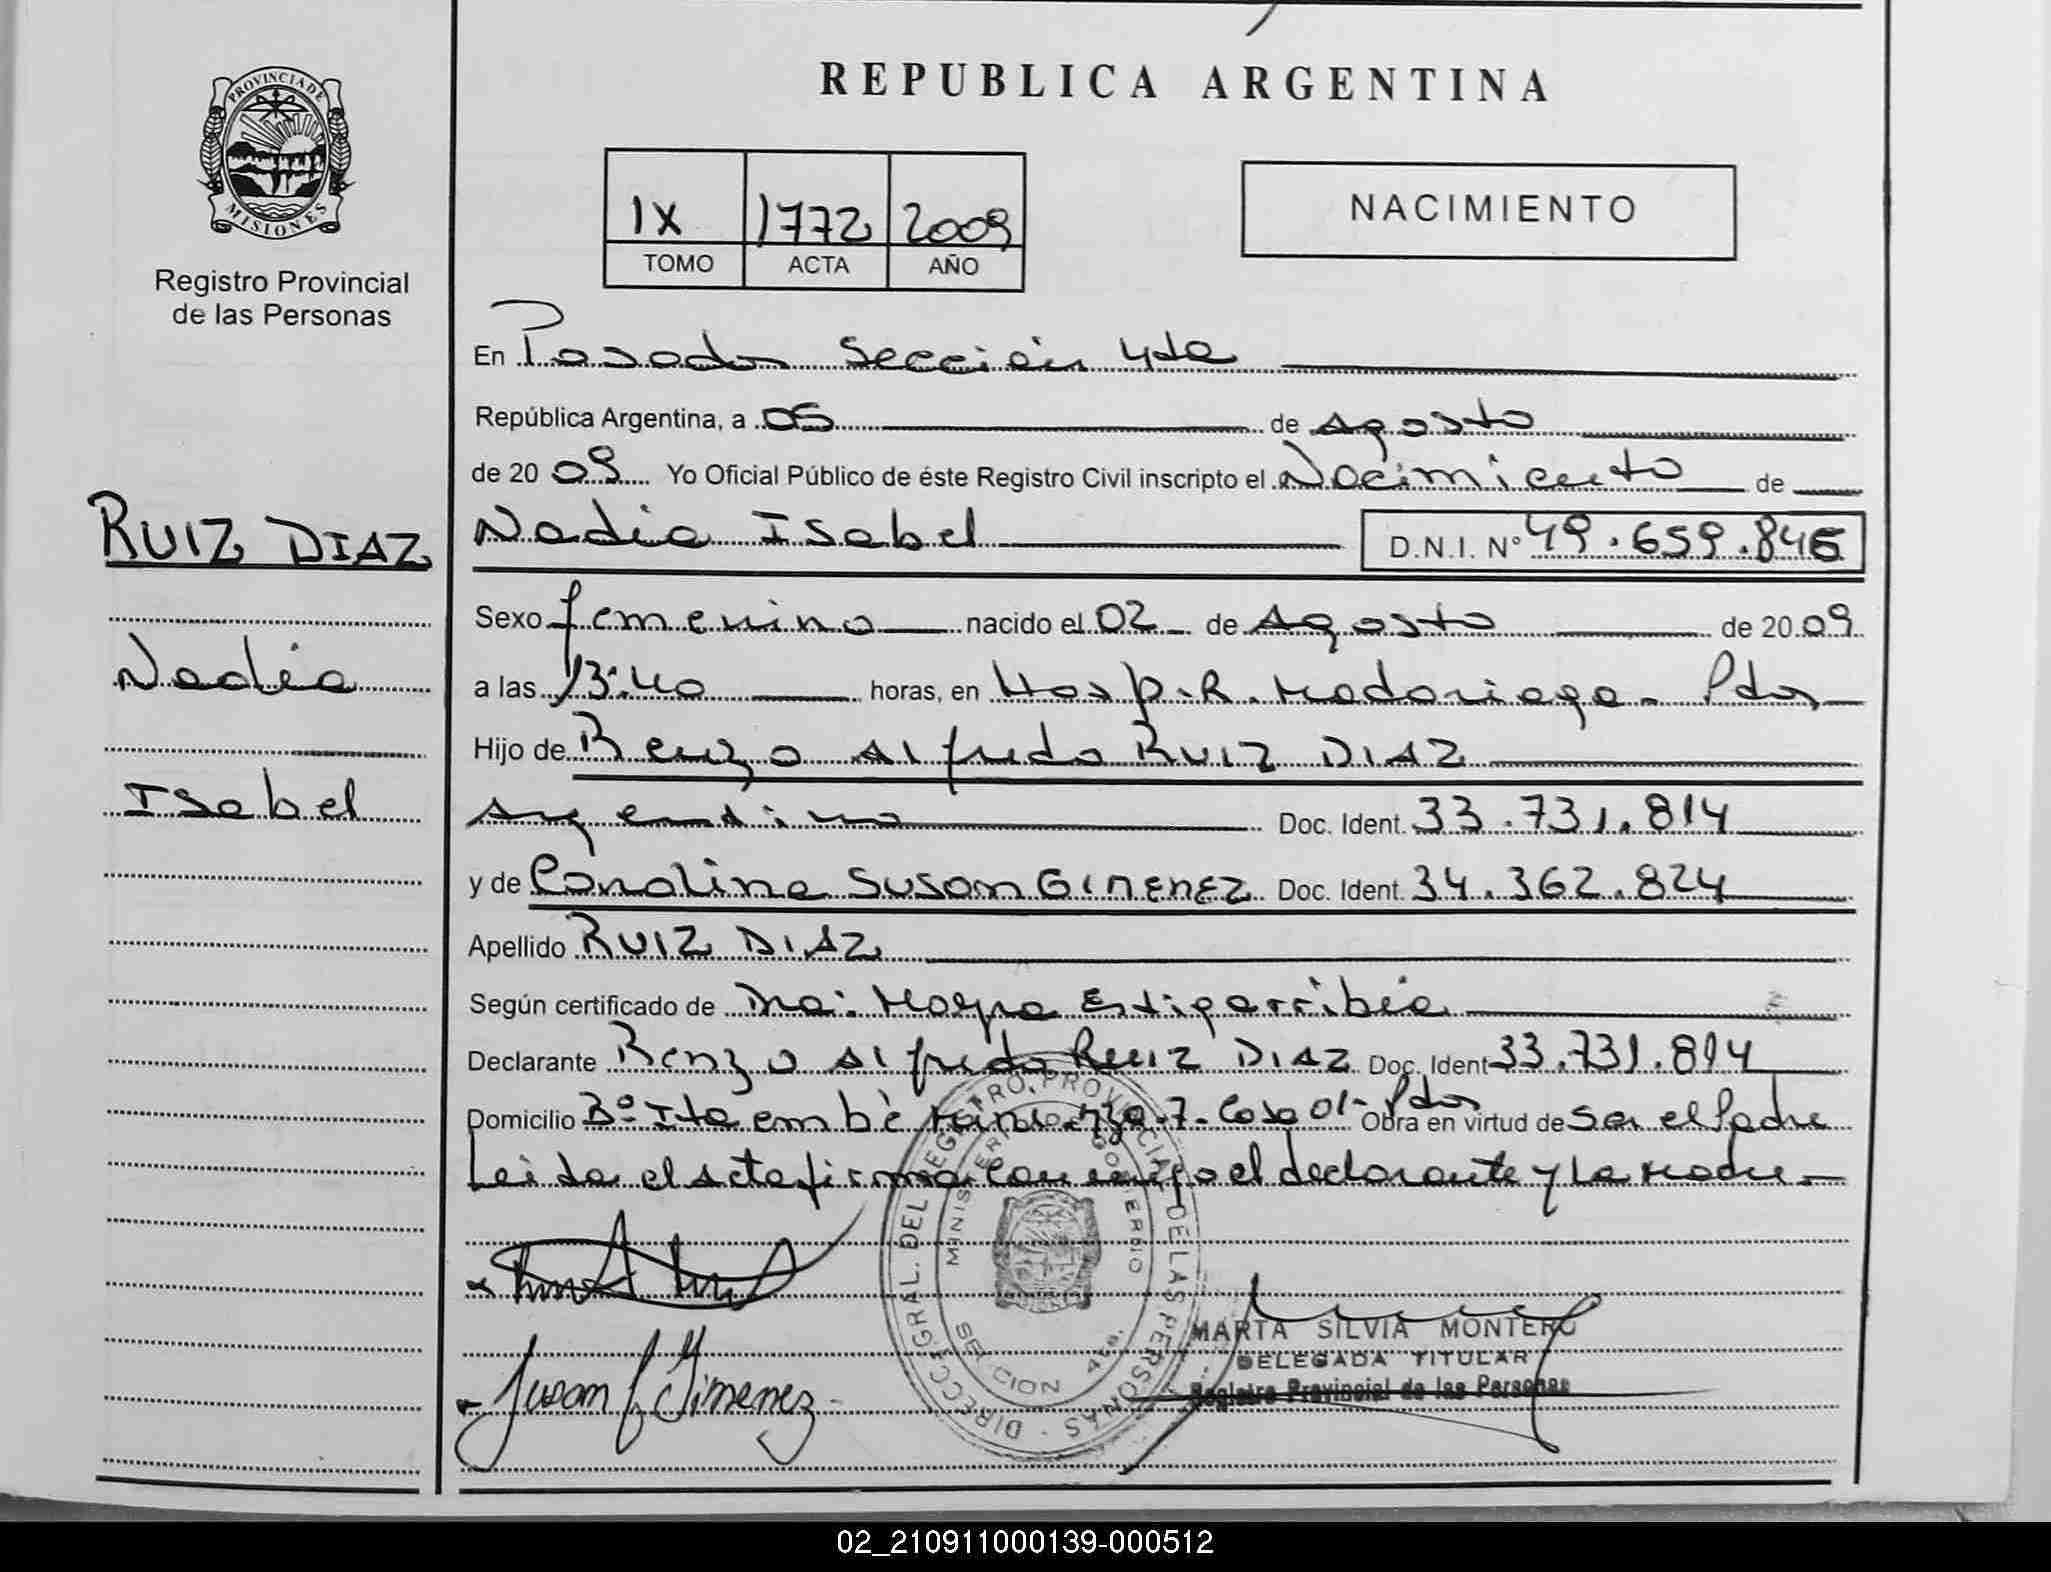 PROVINCIA DE
MISIONES
Registro Provincial
de las Personas
RUIZ DIAZ
Nadia
Isabel
REPUBLICA ARGENTINA
IX 1772 2009
TOMO ACTA AÑO
NACIMIENTO
En Posadas Sección 4ta
República Argentina, a 05 de Agosto
de 20 09 Yo Oficial Público de éste Registro Civil inscripto el Nacimiento de
Nadia Isabel D.N.I. N° 49.659.846
Sexo femenino nacido el 02 de Agosto de 20 09
a las 13:40 horas, en Hosp. R. Madariaga - Pdas
Hijo de Renzo Alfredo RUIZ DIAZ
Argentino Doc. Ident. 33.731.814
y de Carolina Susan GIMENEZ Doc. Ident. 34.362.824
Apellido RUIZ DIAZ
Según certificado de Dra: Mayra Estigarribia
Declarante Renzo Alfredo Ruiz DIAZ Doc. Ident 33.731.814
Domicilio B° Ita embé 7- Casa 01- Pdas Obra en virtud de Ser el Padre
Leida el acta firma conmigo el declarante y la Madre -
Susan Gimenez
DIRECC. GRAL. DEL REGISTRO PROVINCIAL DE LAS PERSONAS
MINISTERIO GOBIERNO
SECCION 4ta.
MARTA SILVIA MONTERO
DELEGADA TITULAR
Registro Provincial de las Personas
02_210911000139-000512